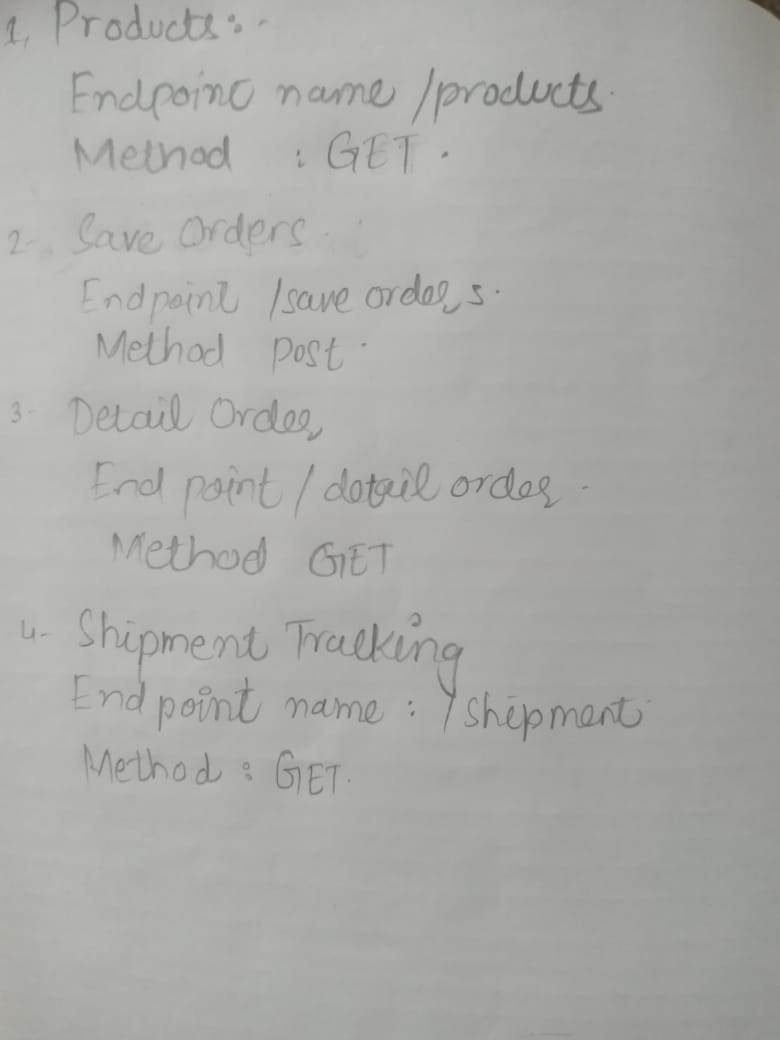 1, Products:-
Endpoint name /products.
Method : GET.
2- Save Orders.
Endpoint /save orders.
Method post.
3- Detail Order
End point / detail order.
Method GET
4- Shipment Tracking
End point name : /shipment
Method : GET.